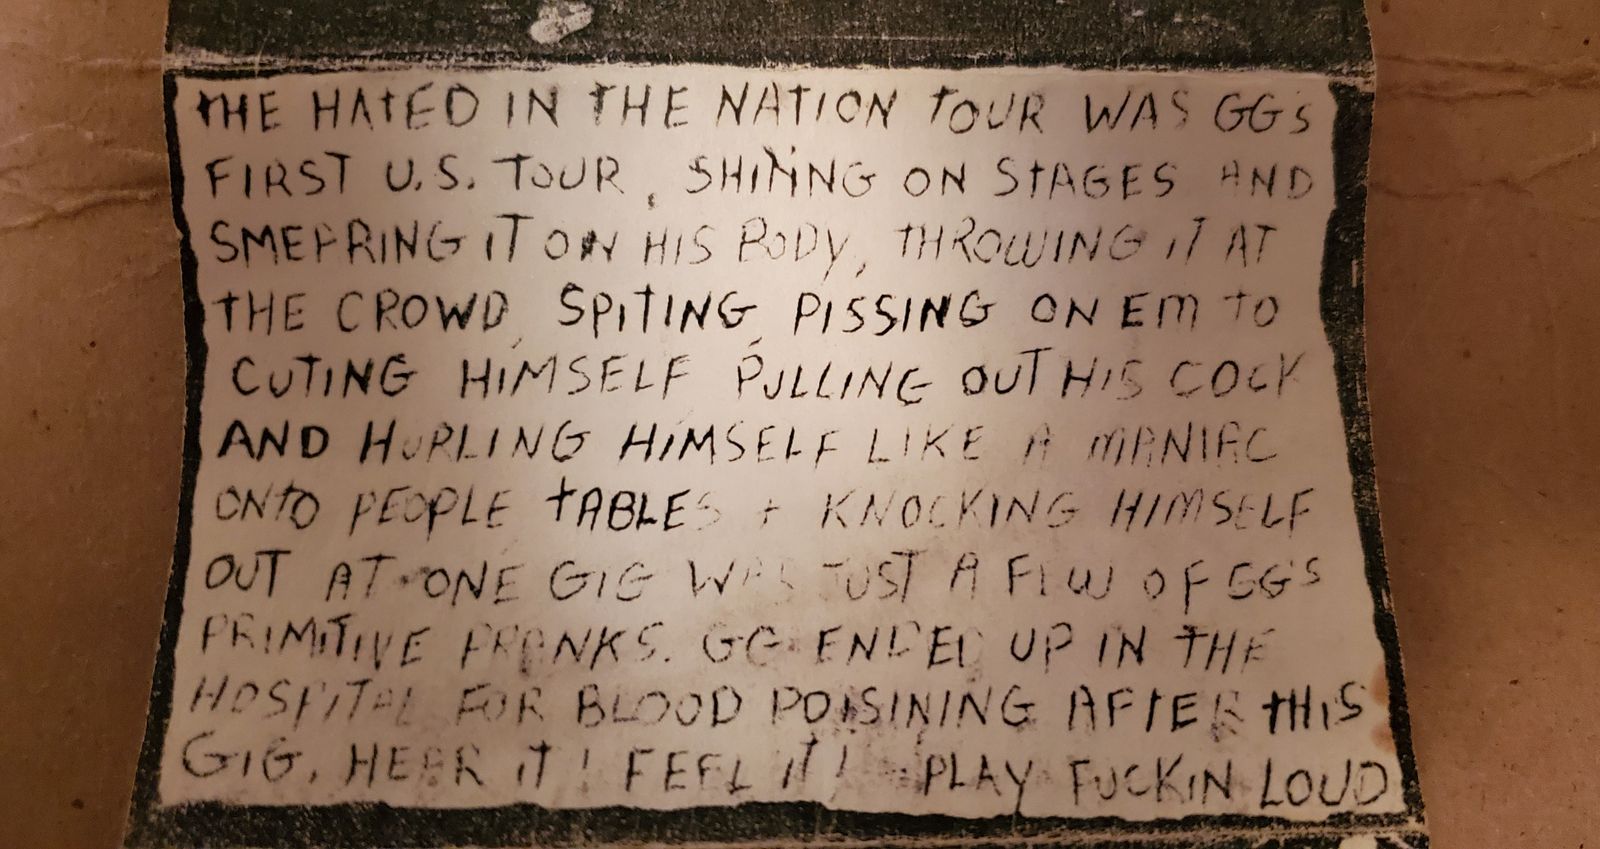 THE HATED IN THE NATION TOUR WAS GG's
FIRST U.S. TOUR, SHITING ON STAGES AND
SMEARING IT ON HIS BODY, THROWING IT AT
THE CROWD, SPITING, PISSING ON EM TO
CUTING HIMSELF PULLING OUT HIS COCK
AND HURLING HIMSELF LIKE A MANIAC
ONTO PEOPLE TABLES + KNOCKING HIMSELF
OUT AT ONE GIG WAS JUST A FEW OF GG's
PRIMITIVE PRANKS. GG ENDED UP IN THE
HOSPITAL FOR BLOOD POISINING AFTER THIS
GIG. HEAR IT! FEEL IT! PLAY FUCKIN LOUD